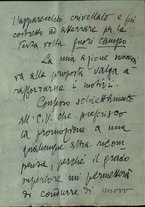 l'apparecchio crivellato e fui
costretto ad atterrare per la
terza volta fuori campo.
La mia azione
va alla proposta valga a
rafforzarne i motivi.
Confesso schiettamente
all'E.V. che preferisco
la promozione a una
qualunque altra ricom
pensa, perché il grado
superiore mi permetterà
di condurre di nuovo